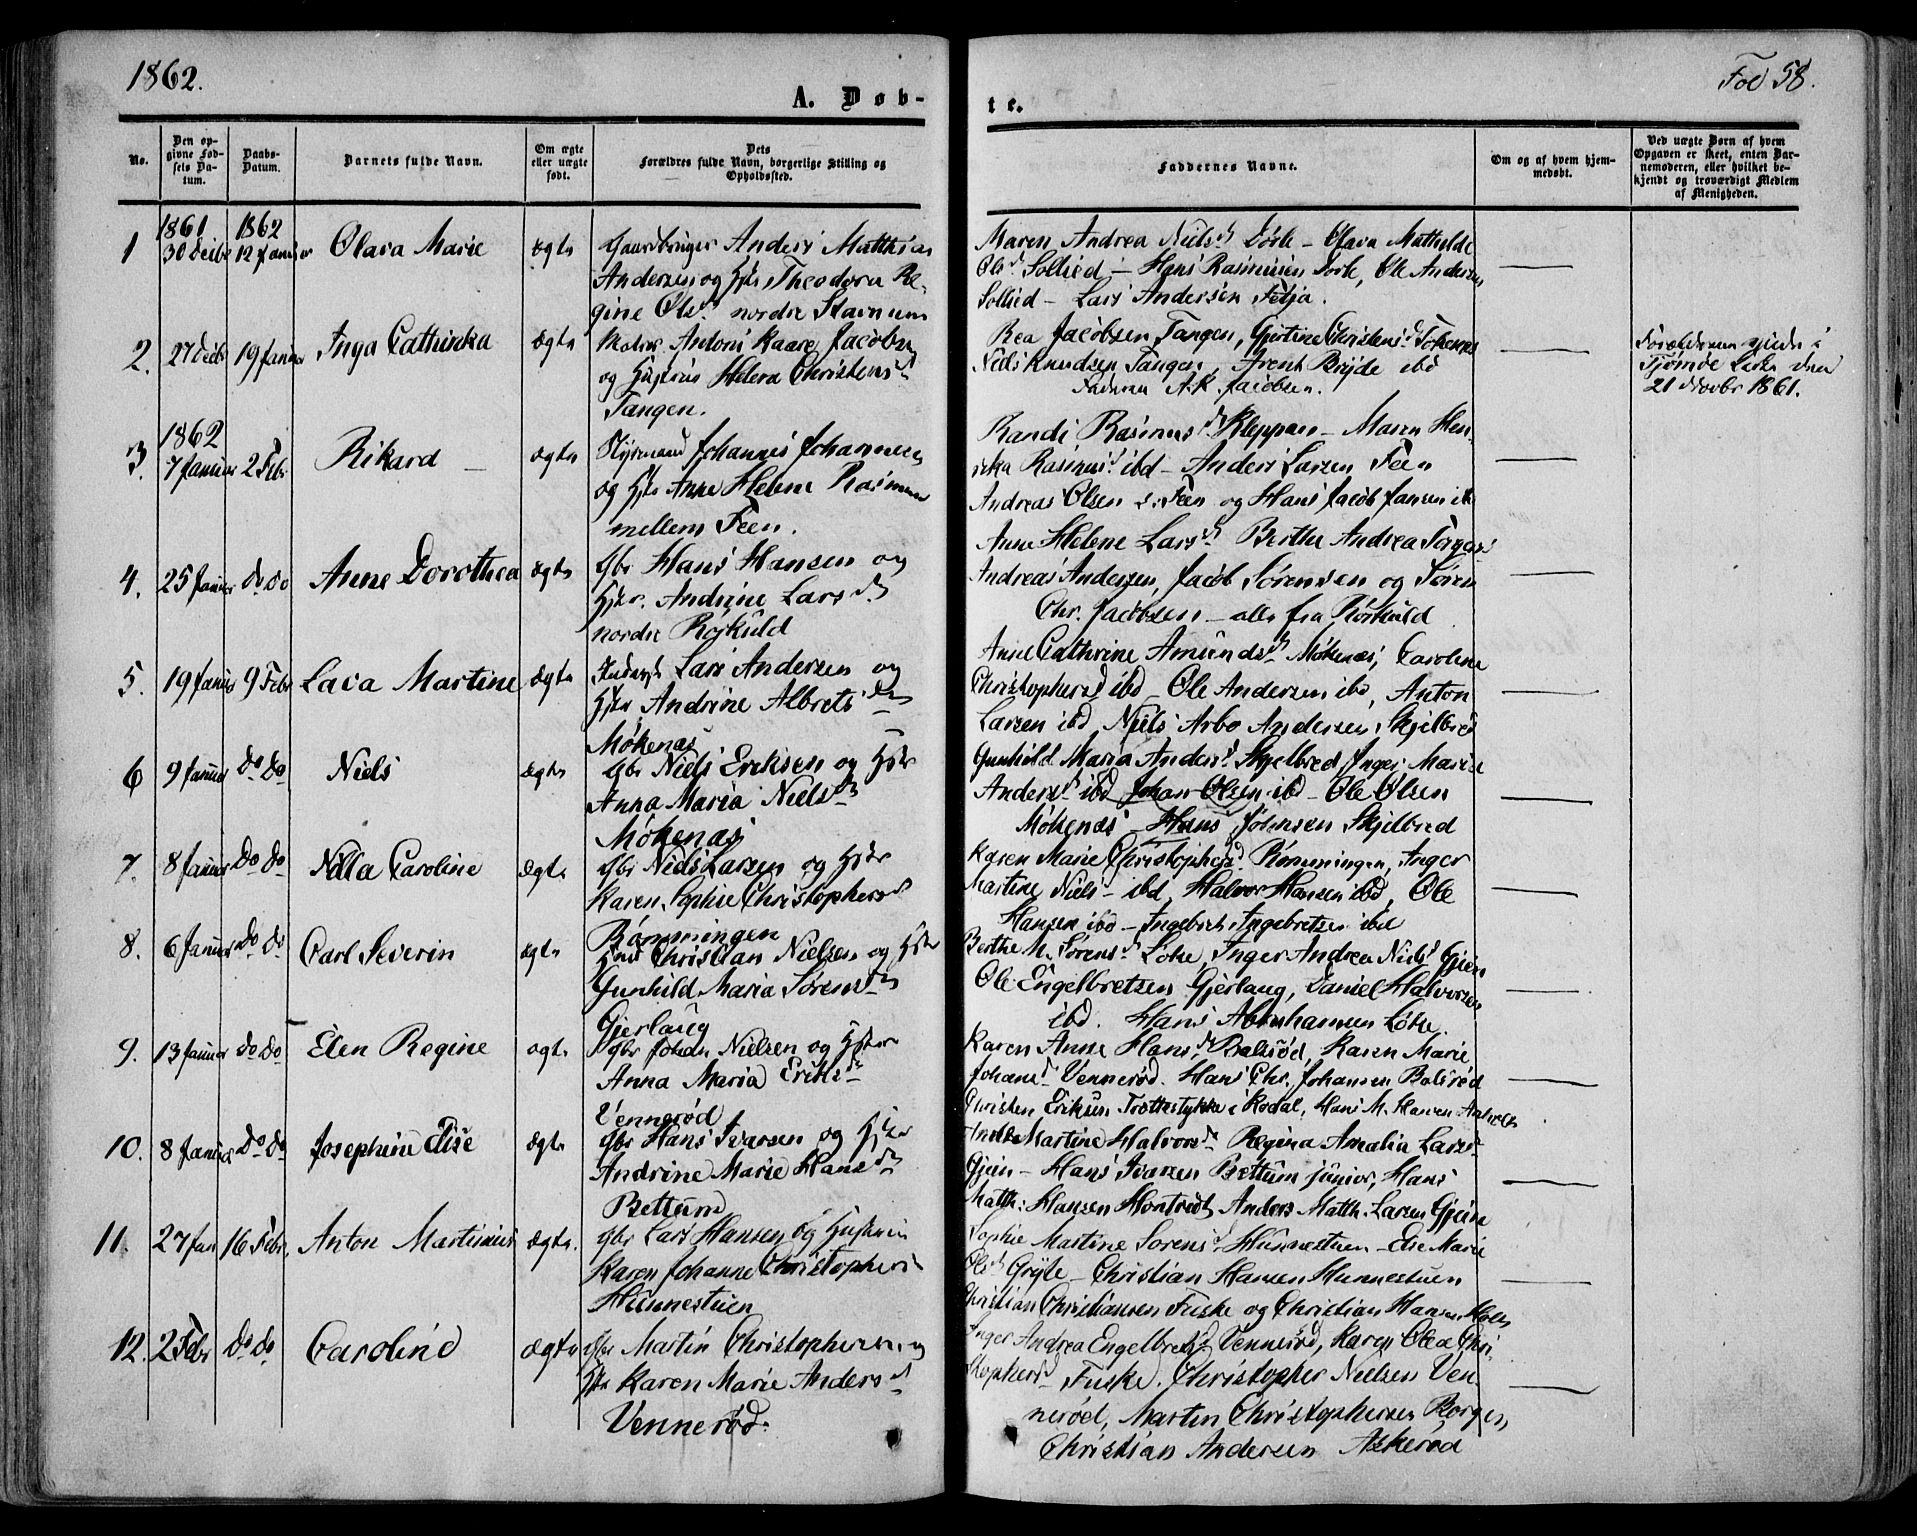 1862.
Fol 58.
A. Døb-
te.
No.
Den op-
givne Fød-
sels Da-
tum.
Daabs-
Datum.
Barnets fulde Navn.
Om ægte
eller uægte
født.
Dets
Forældres fulde Navn, borgerlige Stilling og
Opholdssted.
Faddernes Navne.
Om og af hvem hjem-
medøbt.
Ved uægte Børn af hvem
Opgaven er skeet, enten Bar-
nemoderen, eller hvilket be-
kjendt og troværdigt Medlem
af Menigheden.
1861 1862
1 30 Decbr 12 Januar Olava Marie ægte Gaardbruger Anders Matthias
Andersen og Hstr Theodora Re-
gine Olsd nordre Stavnum
Maren Andrea Nielsd Sørbe - Olava Mathilde
Olsd Sollied - Hans Rasmussen Sørbe, Ole Andersen
Sollied - Lars Andersen Fetja.
2. 27 Decbr 19 Januar Inga Cathinka ægte Matros Antoni Kaare Jacobsen
og Hustru Helena Christensd
Tangen.
Bea Jacobsen Tangen, Gjertine Christensd
Niels Knudsen Tangen, Arent Bryde ibd
Faderen A. K. Jacobsen.
Forældrene viede i
Tjømde Kirke den
21 Novbr 1861.
1862
3 7 Januar 2 Febr Rikard ægte Styrmand Johannes Johannesen
og Hstr Anne Helene Rasmus
mellem Feen.
Randi Rasmusd Kleppan - Maren Hen-
rika Rasmusd ibd - Anders Larsen Feen
Andreas Olsen Feen og Hans Jacob Jansen ibd
4. 25 Januar do do Anne Dorothea ægte Gbr Hans Hansen og
Hstr. Andrine Larsd
nordre Rørkuld
Anne Helene Larsd Berthe Andrea
Andreas Andersen, Jacob Sørensen og Søren
Chr. Jacobsen - alle fra Rørkuld
5. 19 Januar 9 Febr Lava Martine ægte Lars Andersen og
Hstr Andrine Albretsd
Møkenæs
Anne Cathrine Amundsd Møkenæs, Caroline
Christophersd ibd - Ole Andersen ibd, Anton
Larsen ibd Niels Arbo Andersen Skjelbred
6 9 Januar do do Niels ægte Gbr Niels Eriksen og Hstr
Anna Maria Nielsd
Møkenæs
Gunhild Maria Andersd Skjelbred, Inger Marie
Andersd ibd Johan Olsen ibd - Ole Olsen
Møkenæs - Hans Johnsen Skjelbred
7. 8 Januar do do Nilla Caroline ægte Gbr Niels Larsen og Hstr
Karen Sophie Christophersd
Rømmingen
Karen Marie Christophersd Rømmingen, Inger
Martine Niels- ibd, Halvor Hansen ibd, Ole
Hansen ibd - Ingebret Ingebretsen ibd
8. 6 Januar do do Carl Severin ægte Christian Nielsen og Hstr
Gunhild Maria Sørensd
Gjerlaug
Berthe M. Sørensd Løke, Inger Andrea Nielsd Gjein
Ole Engelbretsen Gjerlaug, Daniel Halvorsen
ibd. Hans Abrahamsen Løke.
9. 13 Januar do do Elen Regine ægte Gbr Johan Nielsen og Hstr
Anna Maria Eriksd
Vennerød
Karen Anne Hansd Bolsrød, Karen Marie
Johansd Vennerød. Hans Chr. Johansen Bolsrød
Christen Eriksen Trættestykke i Kodal, Hans M. Hansen
10. 8 Januar do do Josephine Elise ægte Gbr Hans Ivarsen og Hstr
Andrine Marie Hansd
Bettum
Martine Halvorsd Regina Amalia Larsd
Gjein - Hans Ivarsen Bettum junior, Hans
Matth: Hansen Hontvedt Anders Matth. Larsen Gjein
11. 27 Jan 16 Febr. Anton Martinius ægte. Gbr Lars Hansen og Hustru
Karen Johanne Christophers
Hunnestuen
Sophie Martine Sorensd Hunnestuen - Else Marie
Olsd Gryte - Christian Hansen Hunnestuen
Christian Christiansen Fuske og Christian Hansen
12. 2 Febr do do Caroline ægte Gbr Martin Christophersen og
Hstr Karen Marie Andersd
Vennerød.
Inger Andrea Engelbretsd Vennerød, Karen Olea Chri-
stophersd Fuske. Christopher Nielsen Ven-
nerød, Martin Christophersen Borgen,
Christian Andersen Askerød